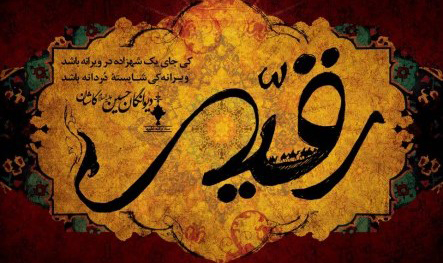 کی جای یک شهزاده در ویرانه باشد
ویرانه کی شایستهٔ دُردانه باشد
دیوانگان حسین کاشان
رقیّه